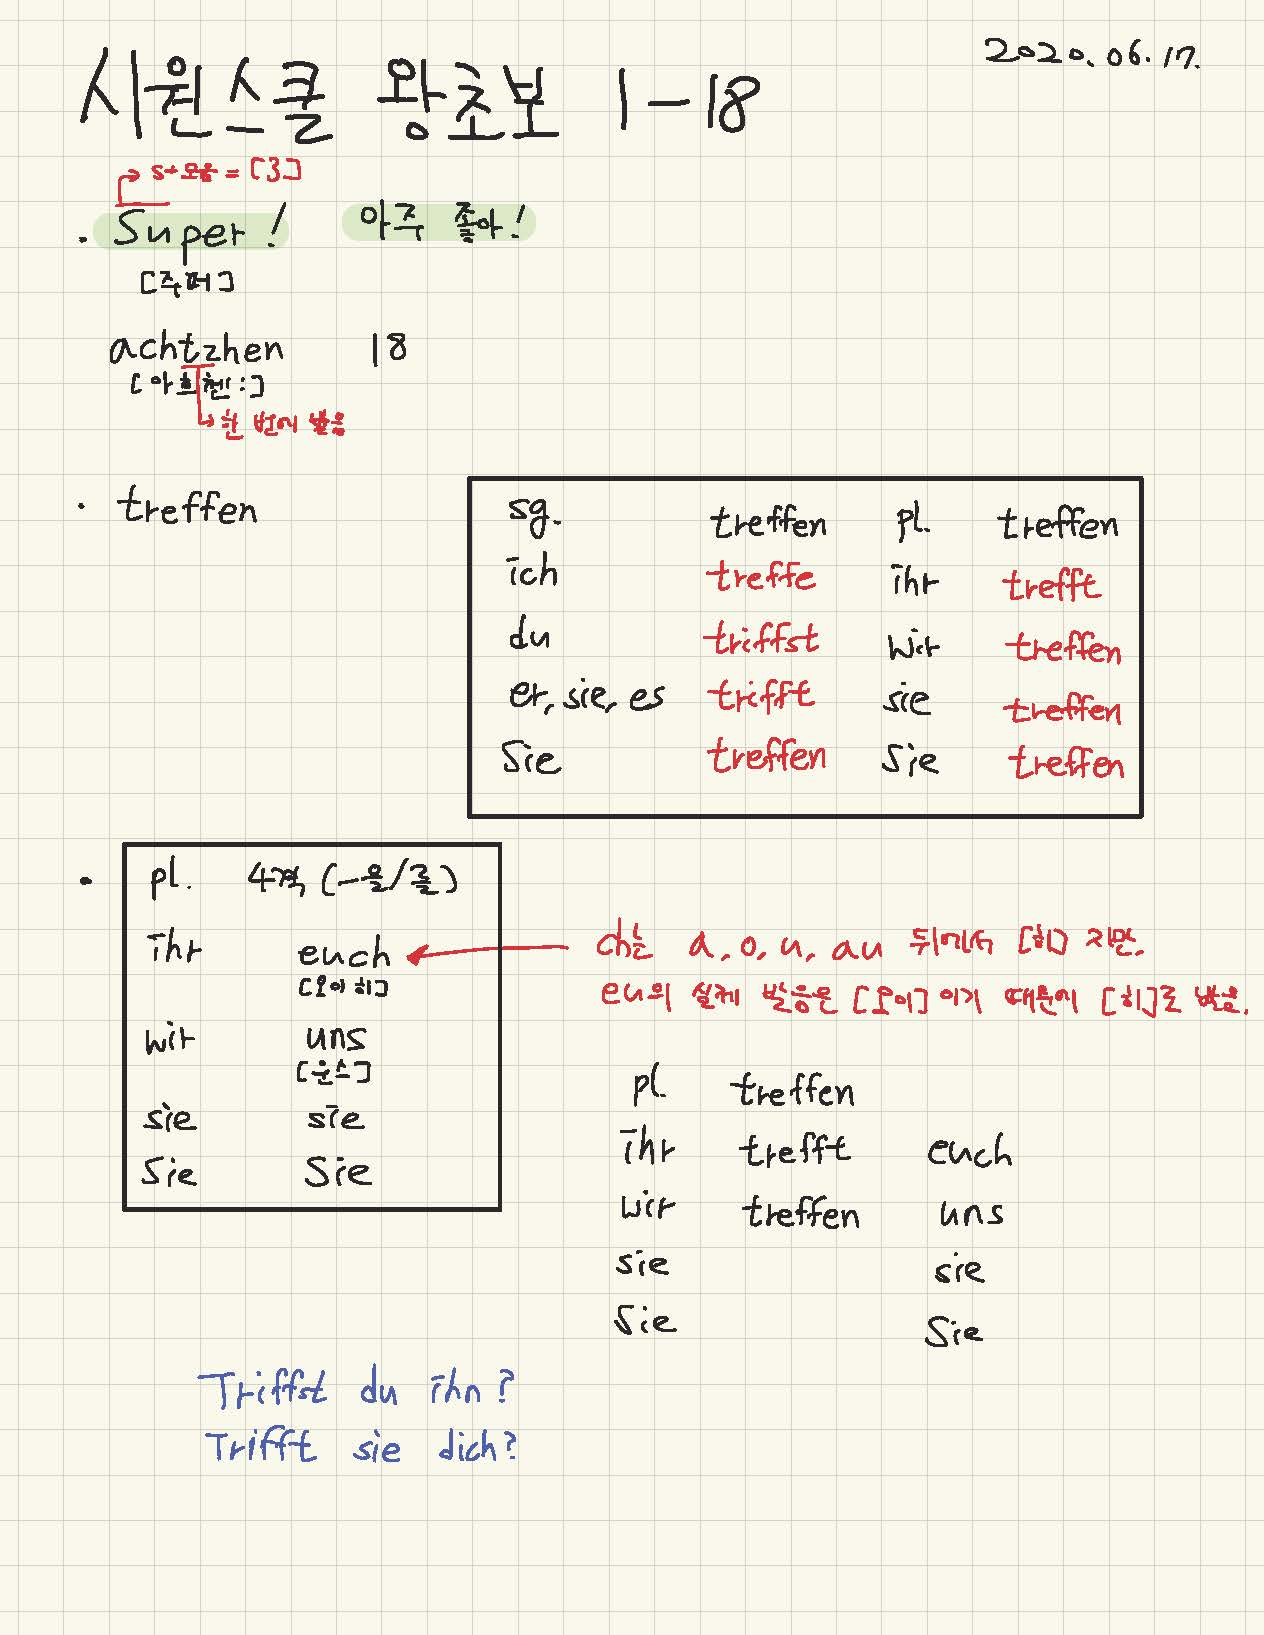 2020.06.17.
시원스쿨 왕초보 1-18
s+모음 = [ㅈ]
· Super! 아주 좋아!
[주퍼]
achtzhen 18
[아흐첸:]
한 번에 발음
· treffen
sg. treffen pl. treffen
ich treffe ihr trefft
du triffst wir treffen
er, sie, es trifft sie treffen
Sie treffen Sie treffen
· pl. 4격 (-을/를)
ihr euch
[오이히]
wir uns
[운스]
sie sie
Sie Sie
ch는 a, o, u, au 뒤에서 [흐] 지만,
eu의 실제 발음은 [오이] 이기 때문에 [히]로 발음.
pl. treffen
ihr trefft euch
wir treffen uns
sie sie
Sie Sie
Triffst du ihn?
Trifft sie dich?